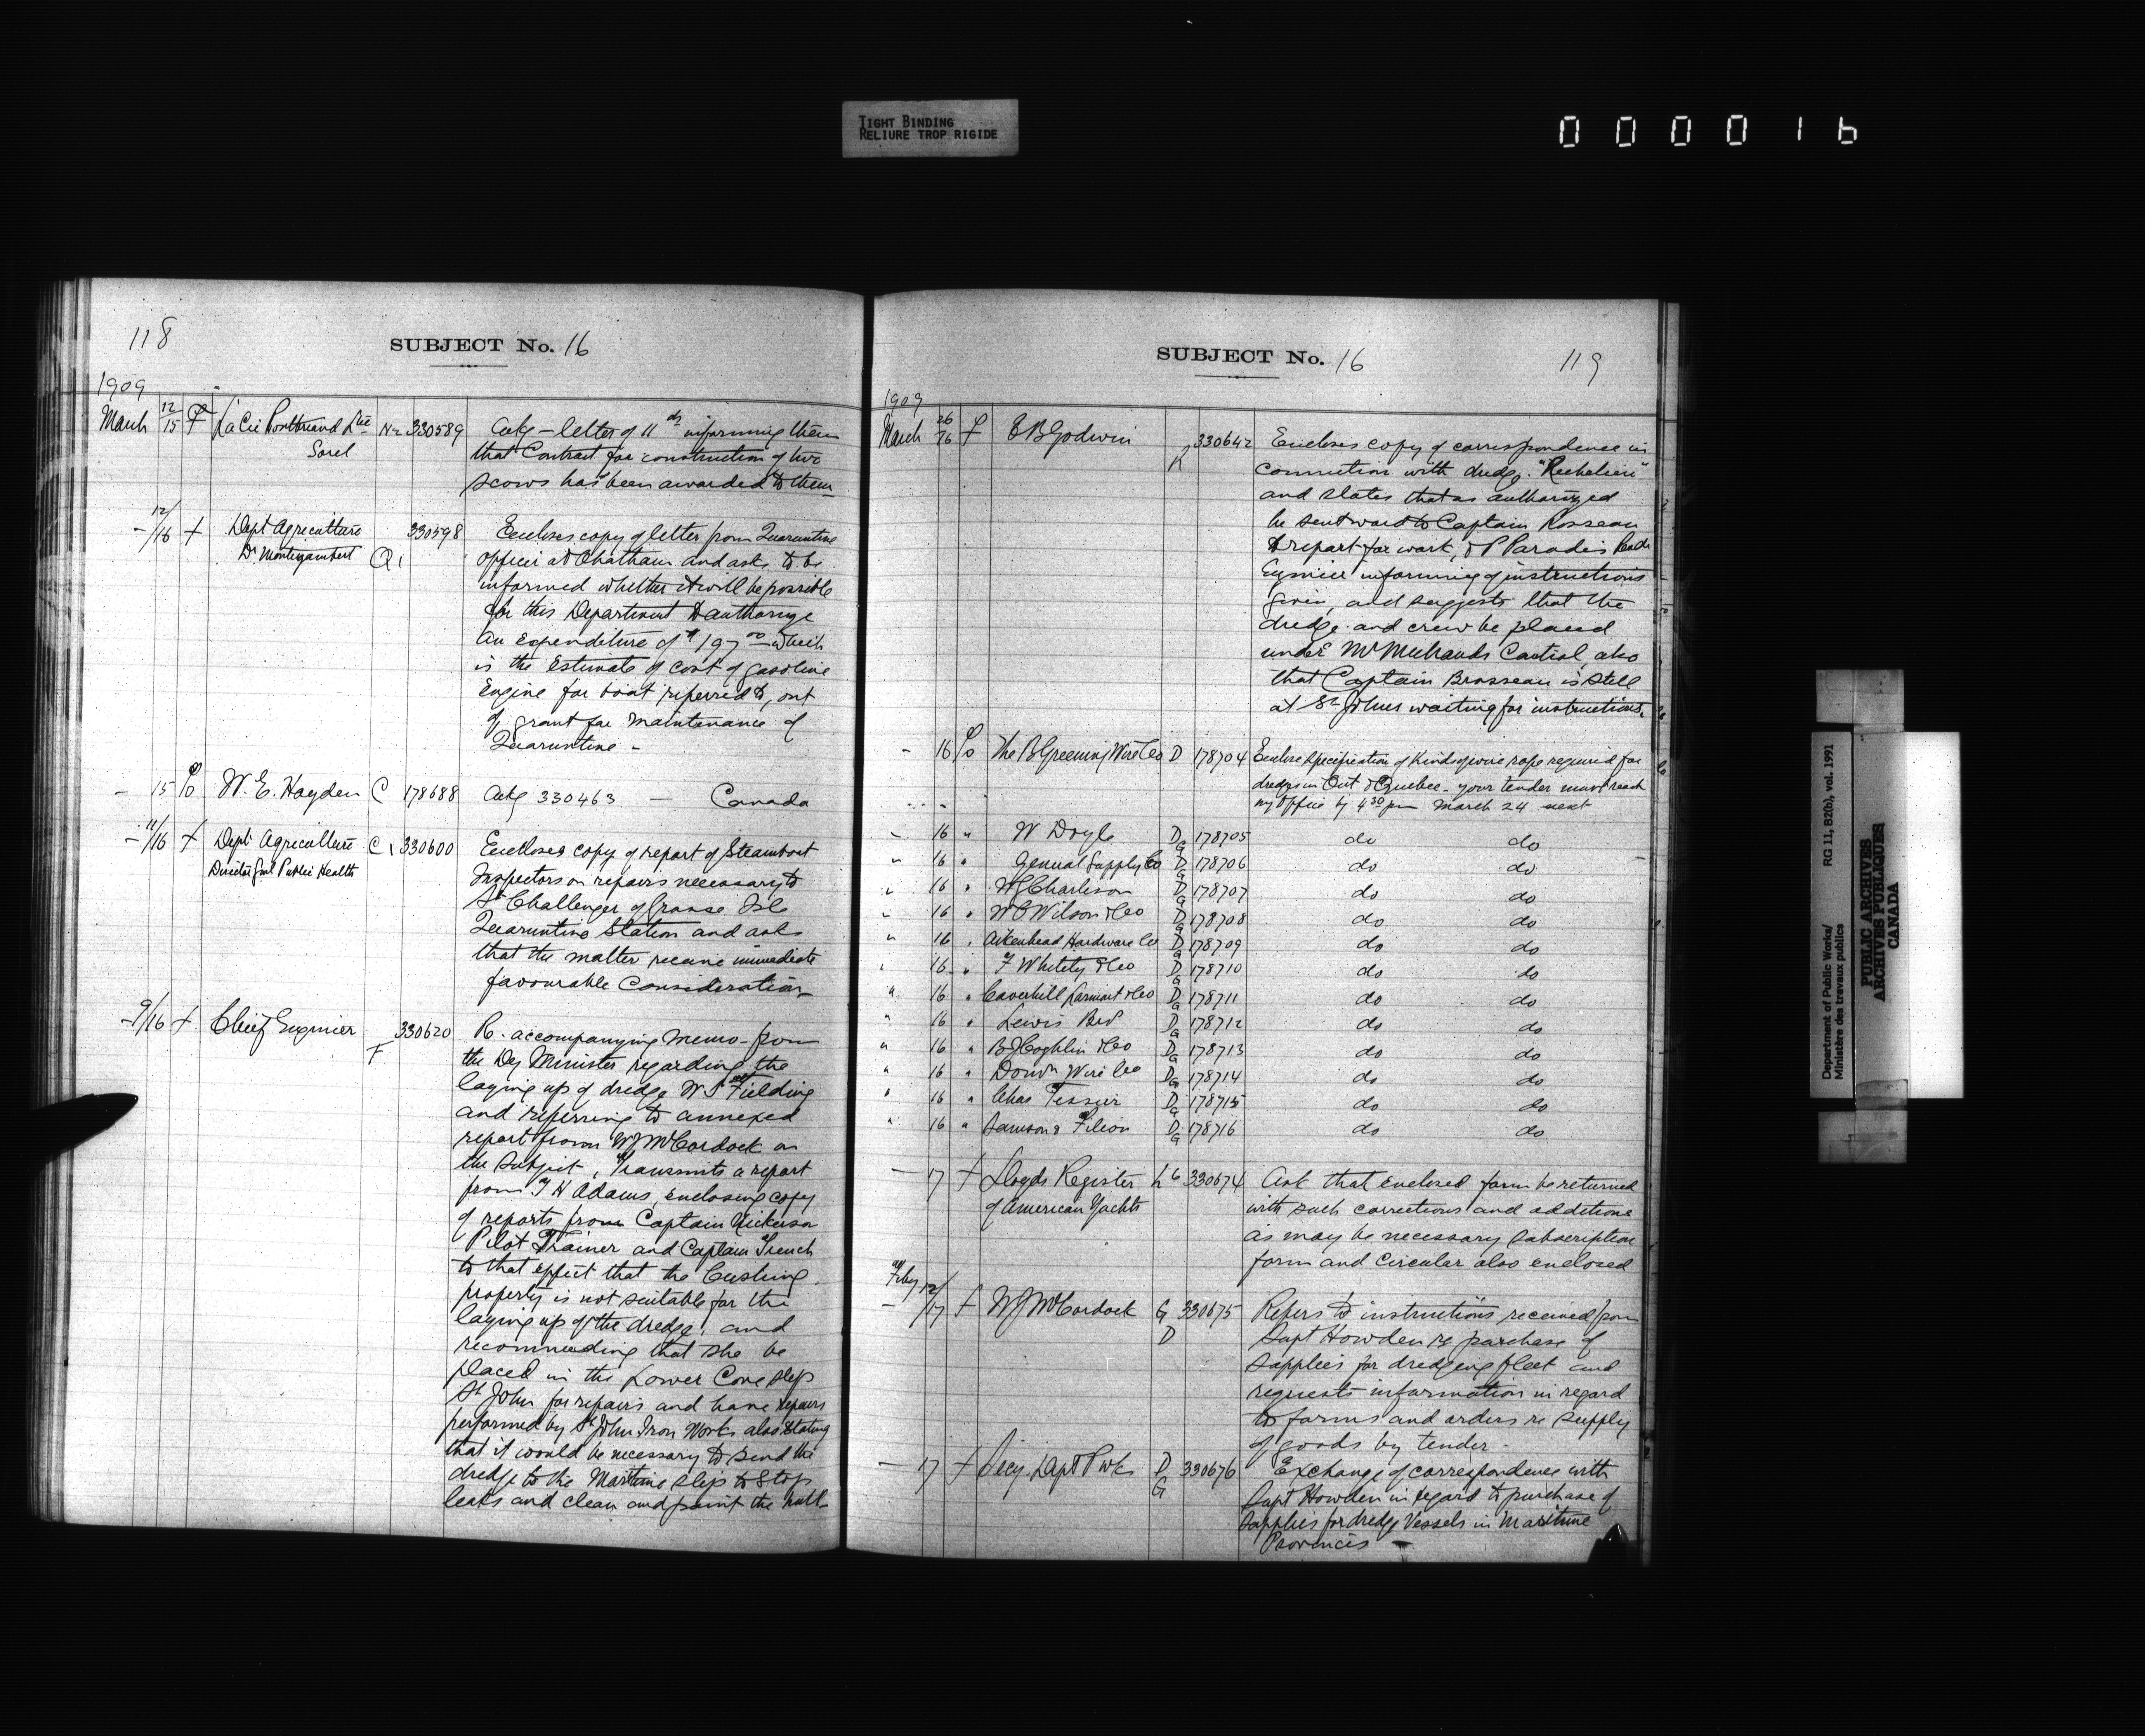 TIGHT BINDING
RELIURE TROP RIGIDE
000016
118
SUBJECT No. 16
1909
March 12/15 La Cie Pontbriand Ltée 330589 Ackg - letter of 11th informing them
Sorel that Contract for construction of two
scows has been awarded to them
- 12/16 Dept Agriculture 330598 Encloses copy of letter from Quarantine
Dr Montizambert Q1 officer at Chatham and asks to be
informed whether it will be possible
for this Department to authorize
an expenditure of $197.00 which
is the Estimate of cost of gasoline
Engine for boat referred to, out
of grant for maintenance of
Quarantine -
- 15 W. E. Hayden C 178688 Ackg 330463 - Canada
- 11/16 Dept Agriculture C1 330600 Encloses copy of report of Steamboat
Director Genl Public Health Inspectors on repairs necessary to
Str Challenger of Grosse Isle
Quarantine Station and asks
that the matter receive immediate
favourable Consideration
- 9/16 Chief Engineer F 330620 R. accompanying memo. from
the Dey Minister regarding the
laying up of dredge W S Fielding
and referring to annexed
report from W J McCordock on
the subject, Transmits a report
from T H Adams, enclosing copy
of reports from Captain Nickerson
Pilot Trainer and Captain French
to that effect that the Cushing
property is not suitable for the
laying up of the dredge, and
recommending that she be
placed in the Lower Cove slip
St John for repairs and have repairs
performed by St John Iron Works also stating
that it would be necessary to send the
dredge to the Maritime slip to stop
leaks and clean and paint the hull
SUBJECT No. 16
119
1909
March 26/16 E B Godwin K 330642 Encloses copy of correspondence in
connection with dredge "Richelieu"
and states that as authorized
he sent word to Captain Rosseau
to report for work, & P Paradis
Engineer informing of instructions
given, and suggests that the
dredge and crew be placed
under Mr Michauds Control, also
that Captain Brosseau is still
at St Johns waiting for instructions.
- 16 The B Greening Wire Co D 178704 Enclose specification of Kinds of wire rope required for
dredges in Ont & Quebec - your tender must reach
my office by 4 30 pm March 24 next
" 16 " W Doyle D G 178705 do do
" 16 " General Supply Co D G 178706 do do
" 16 " W J Charleson D G 178707 do do
" 16 " W C Wilson & Co D G 178708 do do
" 16 " Aikenhead Hardware Co D G 178709 do do
" 16 " F Whitely & Co D G 178710 do do
" 16 " Caverhill Larmont & Co D G 178711 do do
" 16 " Lewis Bro D G 178712 do do
" 16 " B J Coghlin & Co D G 178713 do do
" 16 " Domn Wire Co D G 178714 do do
" 16 " Chas Tessier D G 178715 do do
" 16 " Samson & Filion D G 178716 do do
- 17 Lloyds Register L6 330674 Ask that enclosed form be returned
of American Yachts with such corrections and additions
as may be necessary subscription
form and circular also enclosed
Feby 12/17 W J McCordock G D 330675 Refers to instructions received from
Supt Howden re purchase of
supplies for dredging fleet and
requests information in regard
to forms and orders re supply
of goods by tender -
- 17 Secy Dept P Wks D G 330676 Exchange of correspondence with
Supt Howden in regard to purchase of
supplies for dredge vessels in Maritime
Provinces -
Department of Public Works/ RG 11, B2(b), vol. 1991
Ministère des travaux publics
PUBLIC ARCHIVES
ARCHIVES PUBLIQUES
CANADA